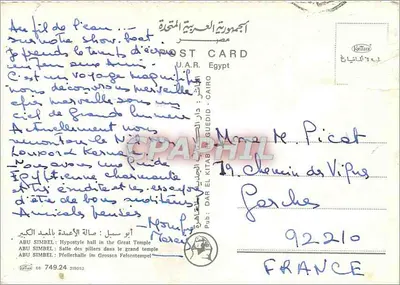 Au fil de l'eau...
sur notre show-boat
je prends le temps d'écrire
C'est un voyage magnifique
nous découvrons merveille
après merveille sous un
ciel de grande lumière
Actuellement nous
montons le Nil
Nous avons une guide
Égyptienne charmante
d'être de bons auditeurs
Amicales pensées
الجمهورية العربية المتحدة
مصر
POST CARD
U.A.R. Egypt
Mme M. Picot
79, Chemin des Vignes
Garches
92210
FRANCE
CPAPHIL
Pub: DAR EL KITAB EL GUEDID - CAIRO
أبو سمبل : صالة الأعمدة بالمعبد الكبير
ABU SIMBEL : Hypostyle hall in the Great Temple
ABU SIMBEL : Salle des piliers dans le grand temple
ABU SIMBEL : Pfeilerhalle im Grossen Felsentempel
749.24